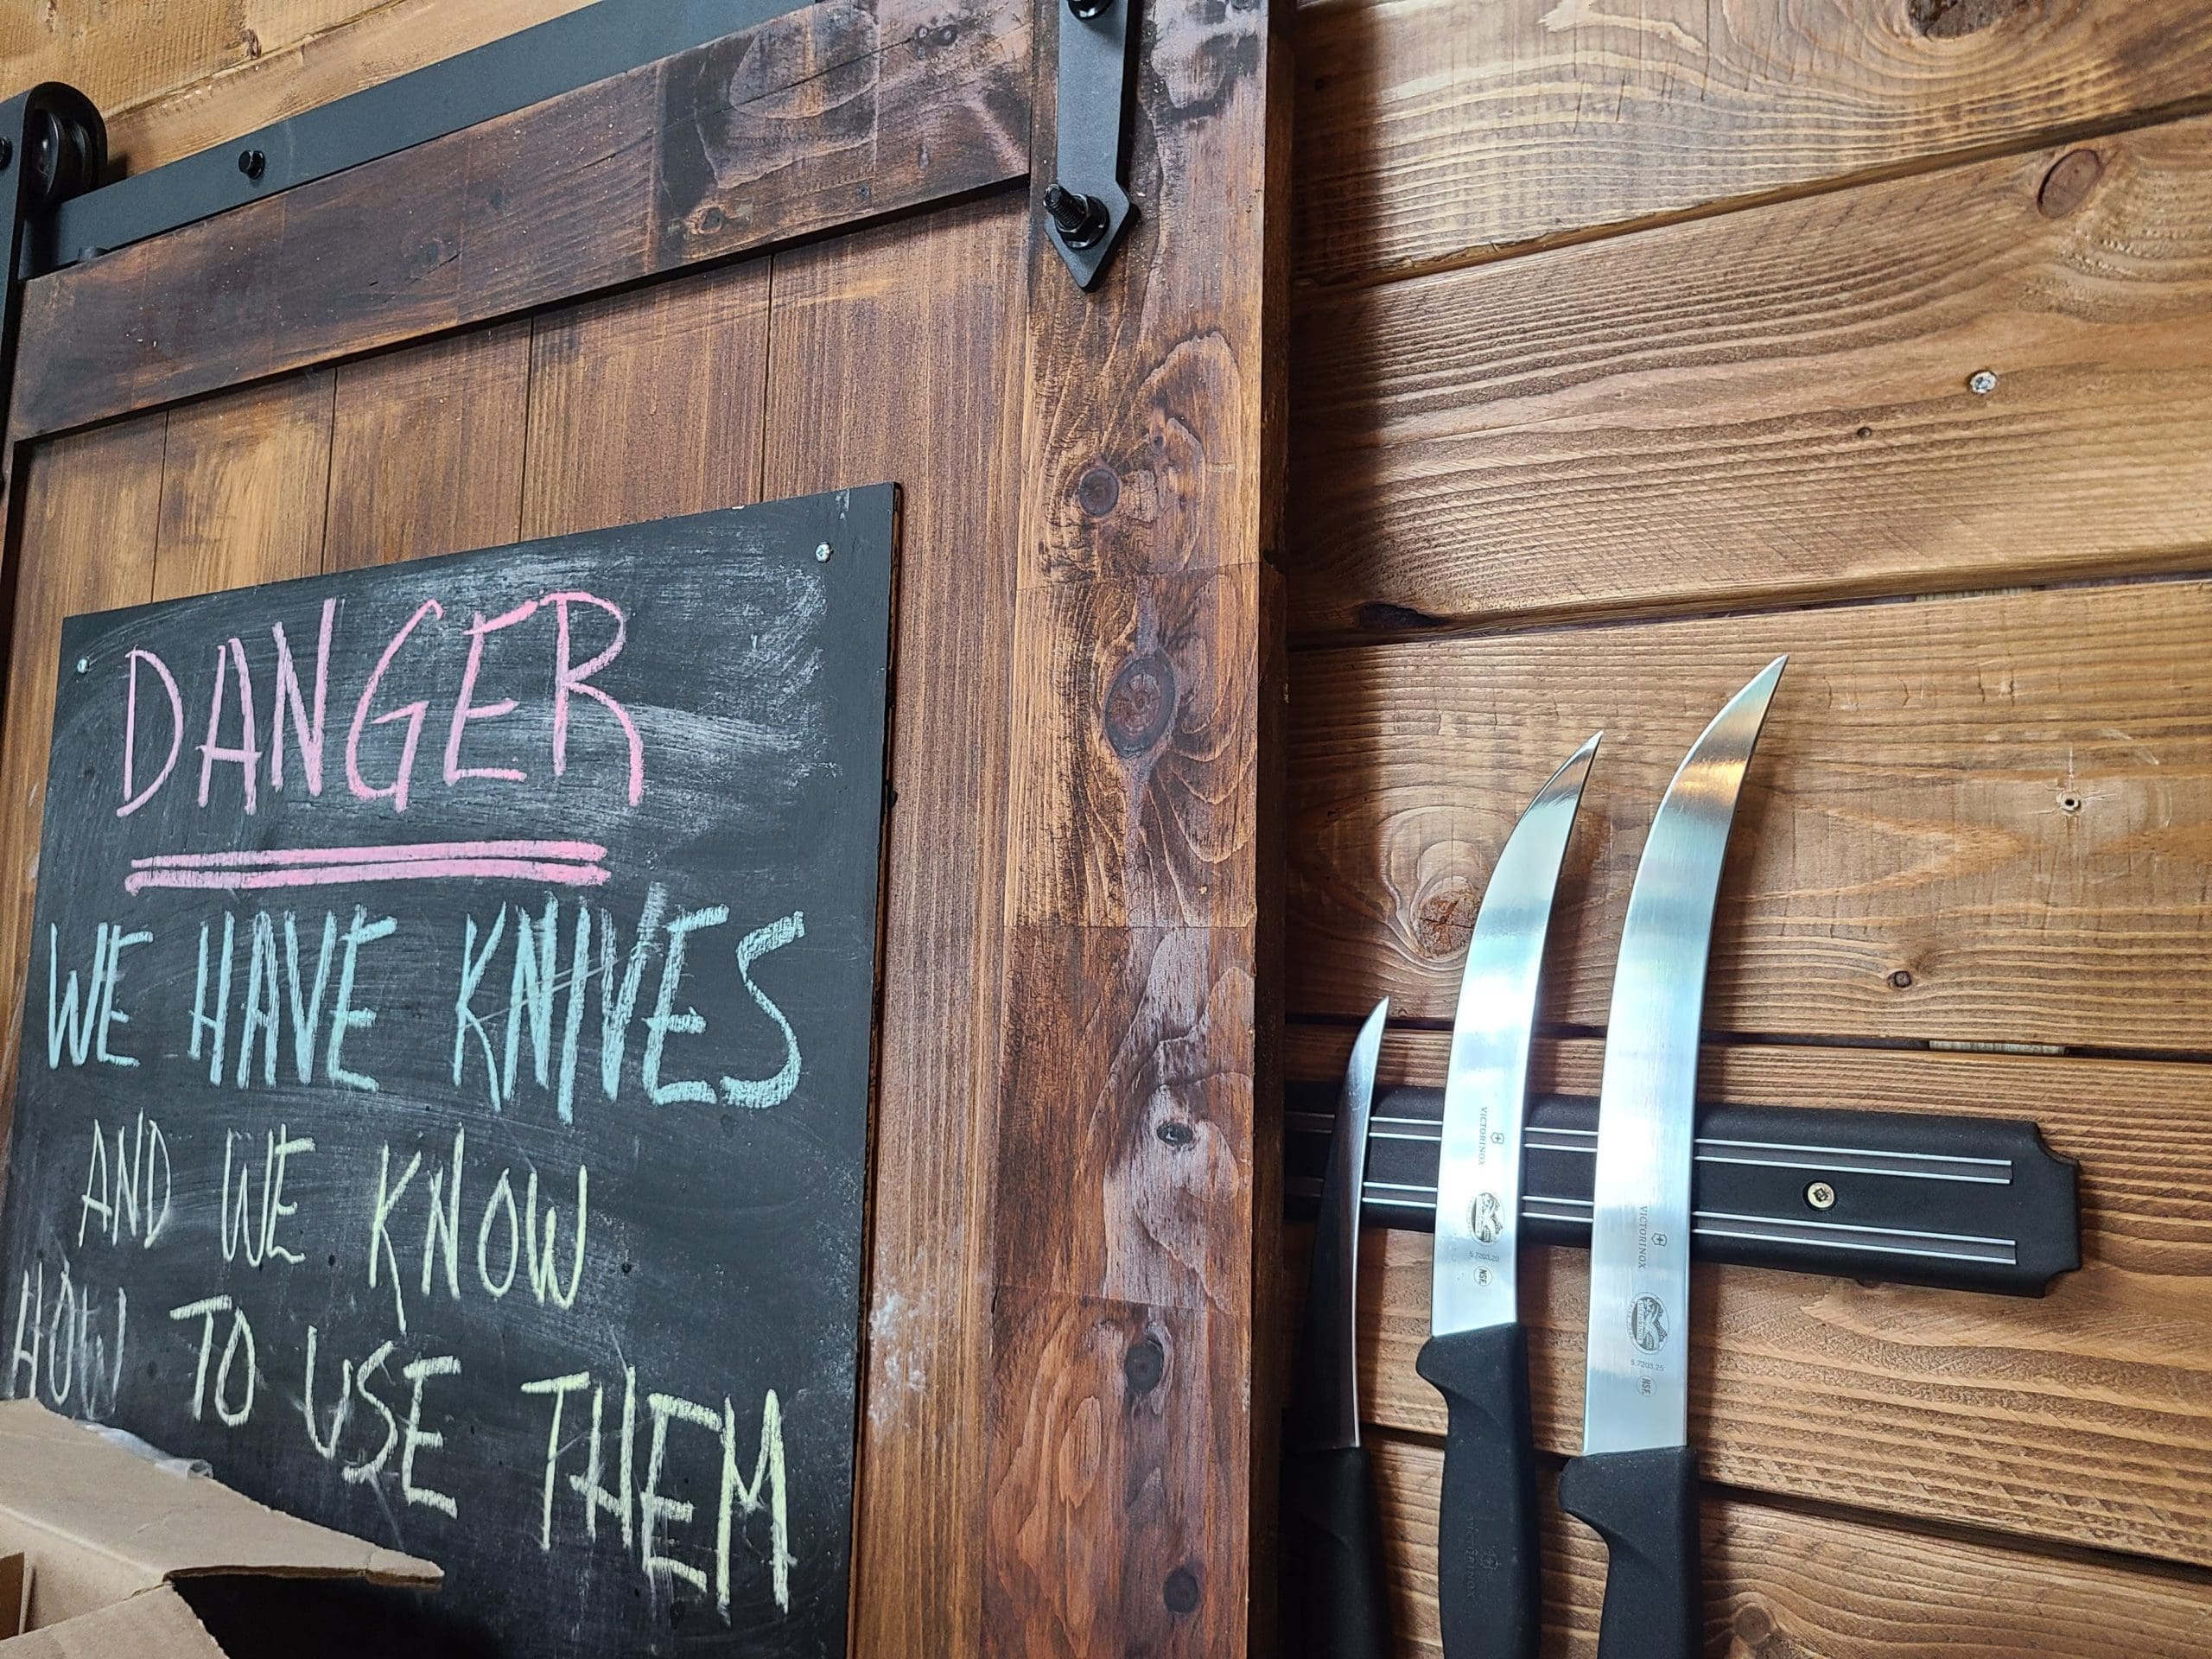 DANGER
WE HAVE KNIVES
AND WE KNOW
HOW TO USE THEM
VICTORINOX
5.7203.20
NSF
VICTORINOX
5.7203.25
NSF
VICTORINOX